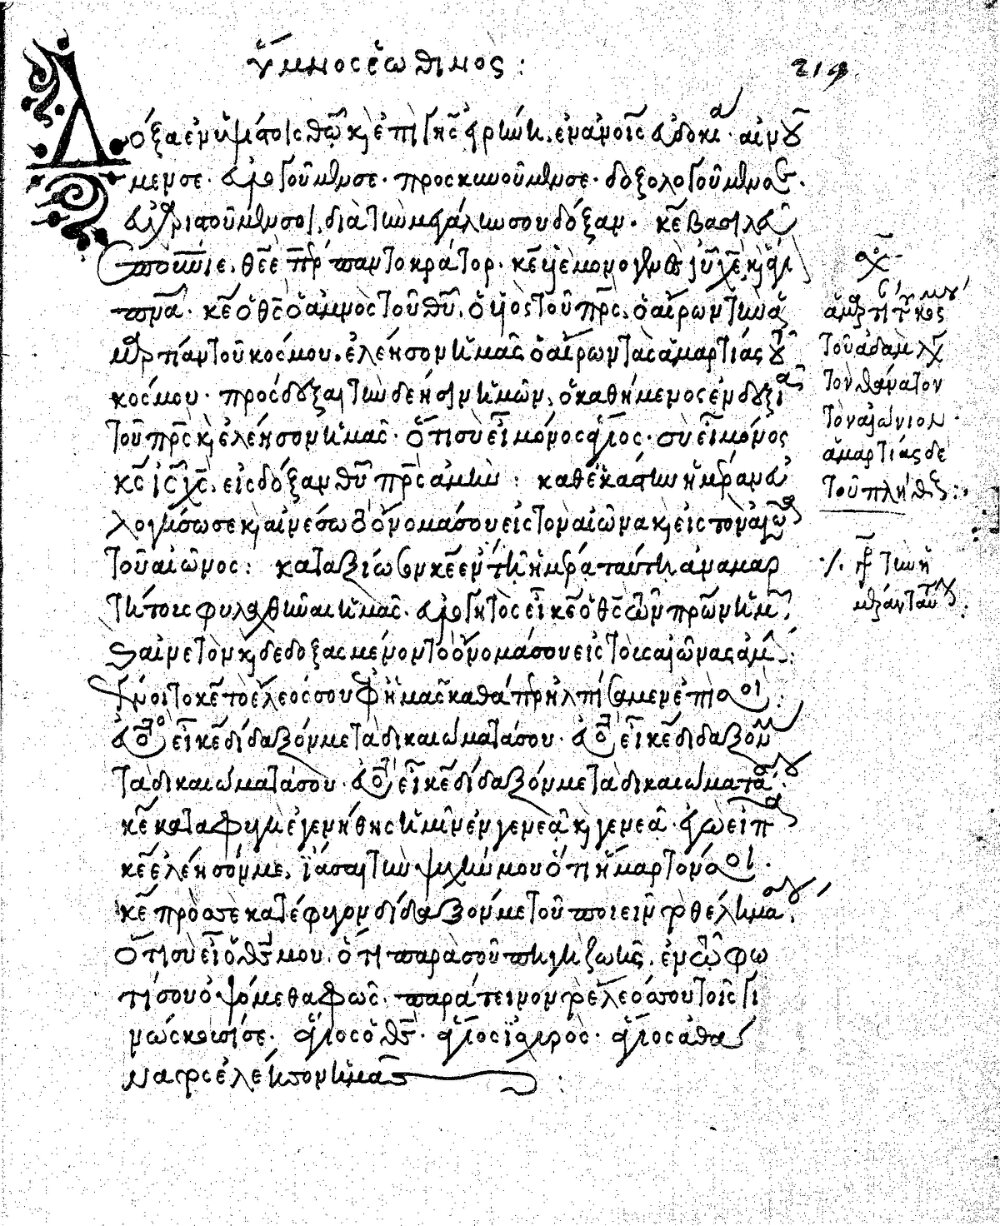 ὕμνος ἑωθινός :
219
Δόξα ἐν ὑψίστοις θῶ κ, ἐπὶ γῆς εἰρήνη, ἐν ἀνοις εὐδοκία · αἰνοῦ
μεν σε · εὐλογοῦμεν σε · προσκυνοῦμεν σε · δοξολογοῦμεν σε ·
εὐχαριστοῦμεν σοι, διὰ τὴν μεγάλην σου δόξαν · κε βασιλεῦ
ἐπουνιε, θεὲ πηρ παντοκράτορ · κε υἱὲ μονογενὲς ιυ χε, κ, ἅγι
ον πνα · κε ὁ θς ὁ ἀμνὸς τοῦ θυ, ὁ υἱὸς τοῦ πρς, ὁ αἴρων τὴν ἁ
μαρτίαν τοῦ κόσμου, ἐλέησον ἡμας ὁ αἴρων τὰς ἁμαρτίας τοῦ
κόσμου · πρόσδεξαι τὴν δέησιν ἡμῶν, ὁ καθήμενος ἐν δεξιᾶ
τοῦ πρς κ, ἐλέησον ἡμας · ὅτι συ εἶ μόνος ἅγιος · συ εἶ μόνος
κς ις χς, εἰς δόξαν θυ πρς ἀμήν : καθ' ἑκάστην ἡμέραν εὐ
λογήσω σε κ, αἰνέσω τὸ ὄνομά σου εἰς τὸν αἰῶνα κ, εἰς τὸν αἰῶνα
τοῦ αἰῶνος : καταξίωσον κε ἐν τῆ ἡμέρα ταύτη ἀναμαρ
τήτους φυλαχθῆναι ἡμας · εὐλογητὸς εἶ κε ὁ θς τῶν πρων ἡμῶν,
κ, αἰνετὸν κ, δεδοξασμένον τὸ ὄνομά σου εἰς τοὺς αἰῶνας ἀμήν :
Γένοιτο κε τὸ ἔλεός σου ἐφ' ἡμας καθάπερ ἠλπίσαμεν ἐπὶ σοί :
εὐλογητὸς εἶ κε δίδαξόν με τὰ δικαιώματά σου · εὐλογητὸς εἶ κε δίδαξόν με
τὰ δικαιώματά σου · εὐλογητὸς εἶ κε δίδαξόν με τὰ δικαιώματά σου ·
κε καταφυγὴ ἐγενήθης ἡμῖν ἐν γενεᾶ κ, γενεᾶ · ἐγὼ εἶπα
κε ἐλέησόν με, ἴασαι τὴν ψυχήν μου ὅτι ἥμαρτόν σοι ·
κε πρὸς σε κατέφυγον δίδαξόν με τοῦ ποιεῖν τὸ θέλημά σου,
ὅτι συ εἶ ὁ θς μου, ὅτι παρὰ σοῦ πηγὴ ζωῆς, ἐν τῶ φω
τί σου ὀψόμεθα φῶς · παράτεινον τὸ ἔλεός σου τοῖς γι
νώσκουσί σε · ἅγιος ὁ θς · ἅγιος ἰσχυρὸς · ἅγιος ἀθά
νατος ἐλέησον ἡμας :
τοῦ ἀδὰμ
τὸν θάνατον
τὸν αἰώνιον ·
ἁμαρτίας δὲ
τοῦ πλήθους :